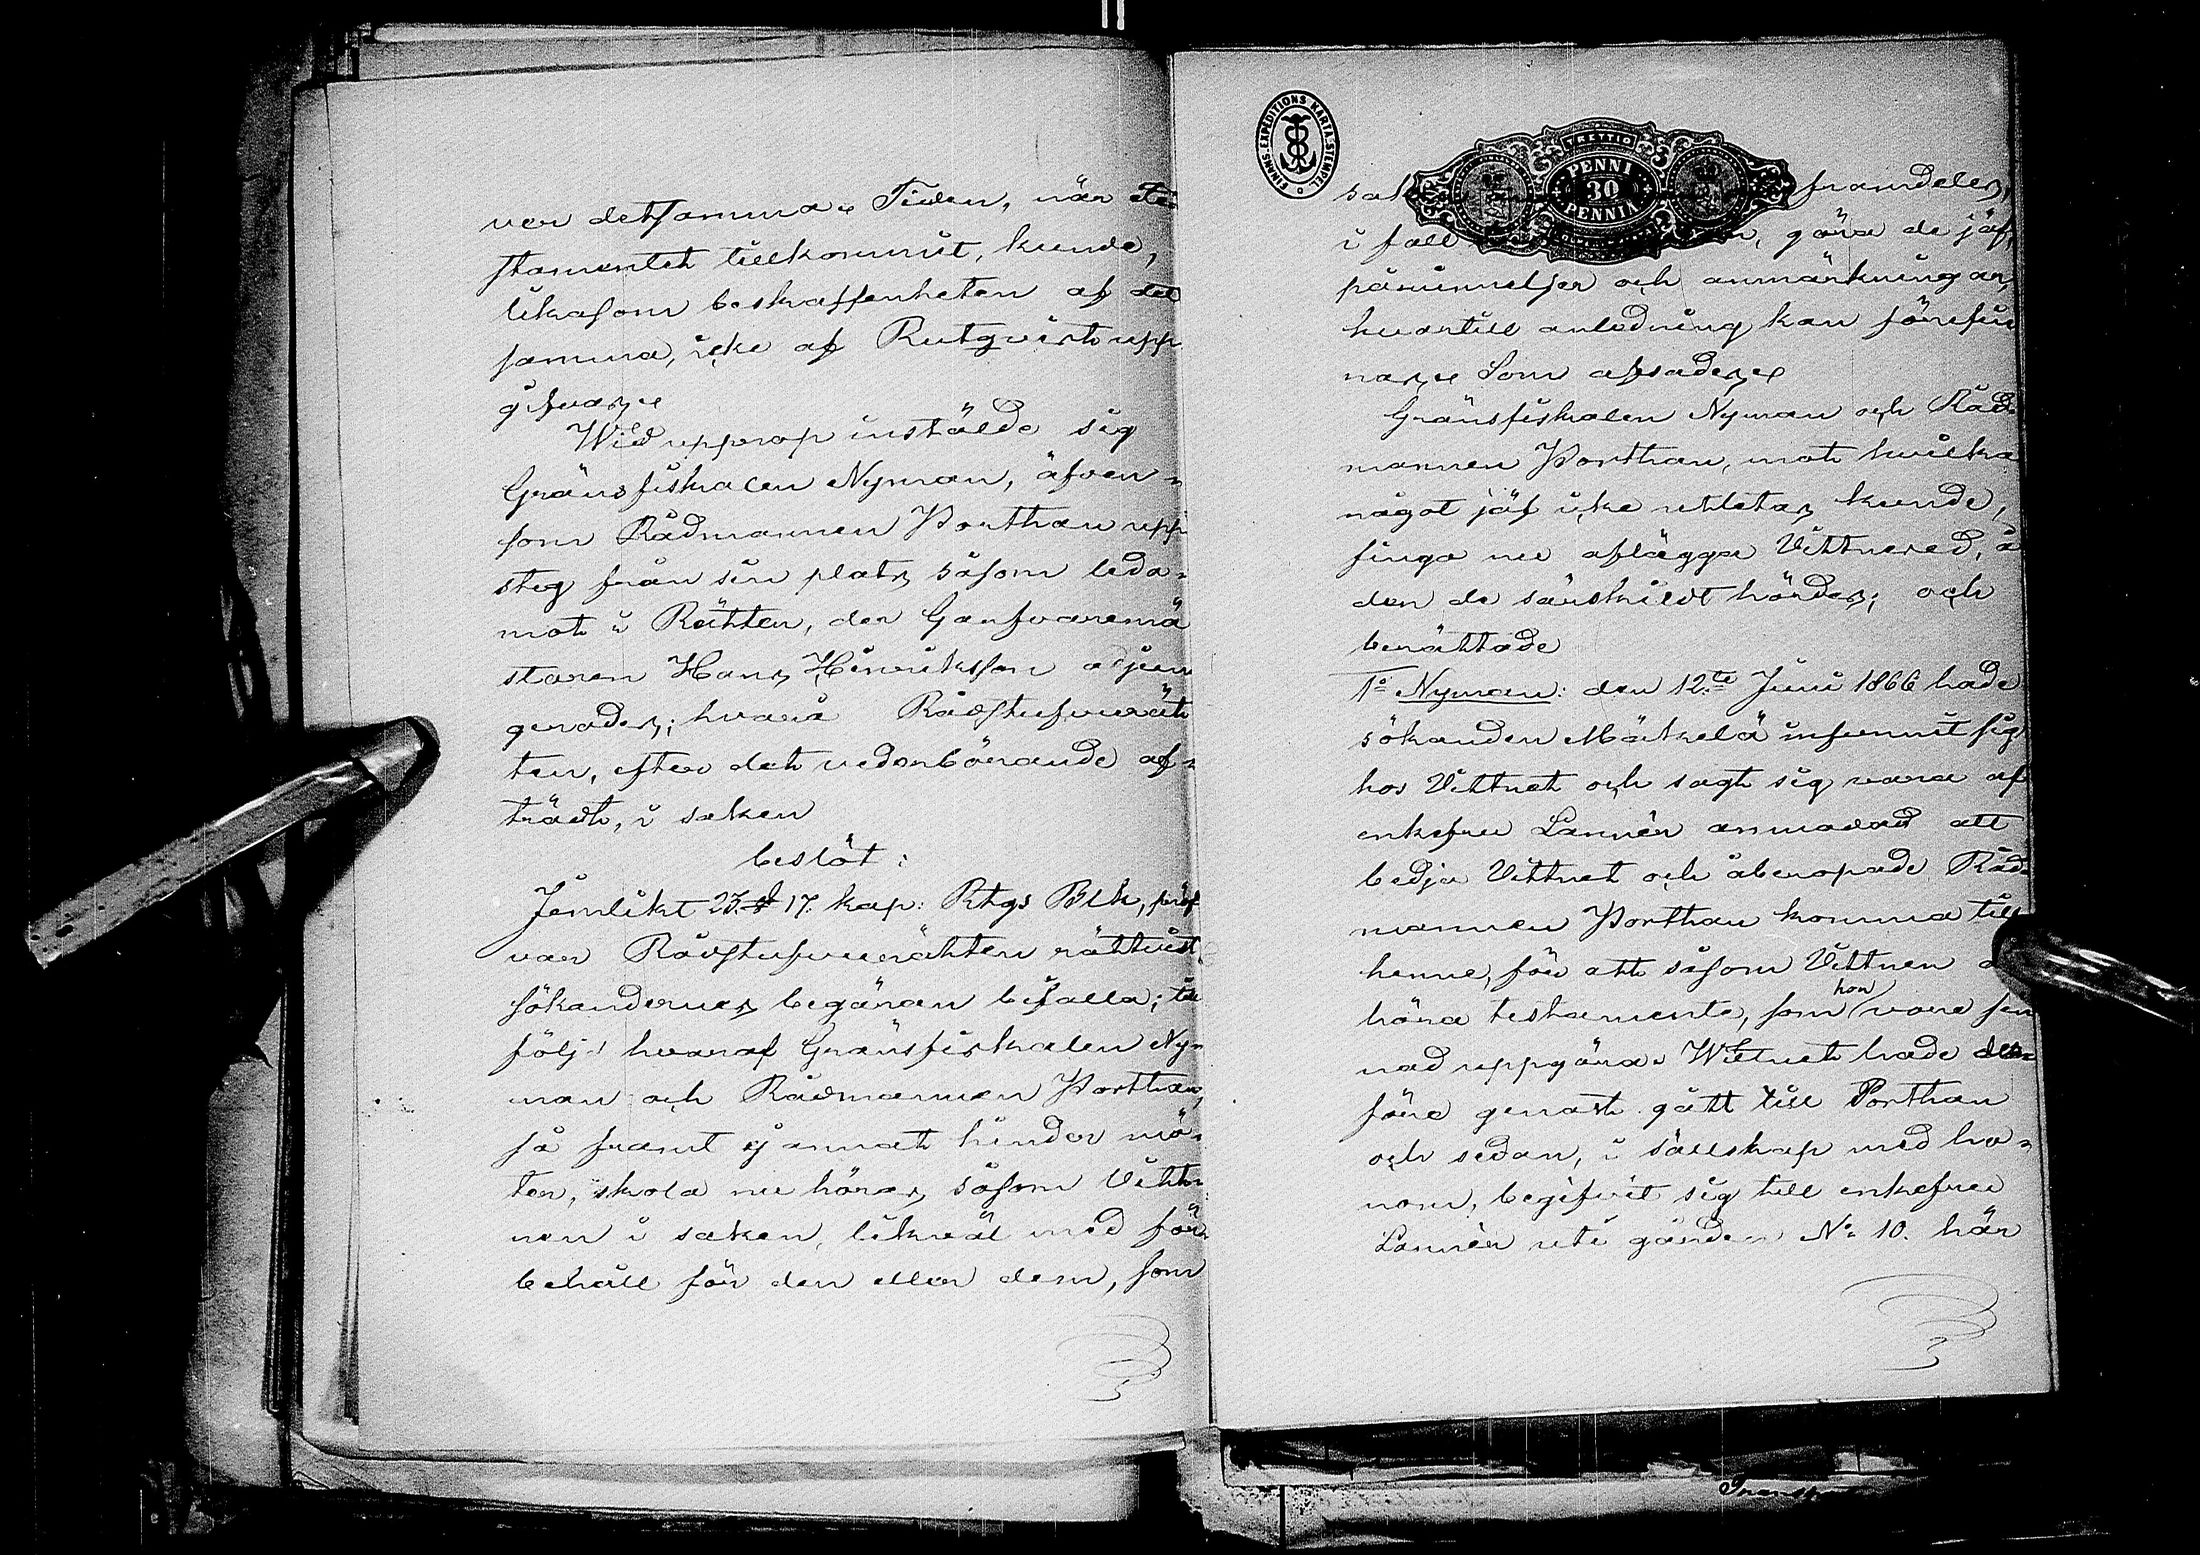 ver detsamma. Tiden, när te-
stamentet tillkommit, kunde,
likasom beskaffenheten af det
samma, icke af Rutqvist upp
gifvas.
Wid upprop instälde sig
Gränsfiskalen Nyman, äfven-
som Rådmannen Porthan upp
steg från sin plats såsom leda-
mot i Rätten, der Garfvaremä
staren Hans Hinriksson adjun
gerades; hvarå Rådstufvurät
ten, efter det vederbörande af-
trädt, i saken
beslöt:
Jemlikt 23. § 17. kap: Rtgs Blk, pröf
var Rådstufvurätten rättvist
sökandernes begäran bifalla; till
följd hvaraf Gränsfiskalen Ny-
man och Rådmannen Porthan,
så framt ej annat hinder mö-
ter, skola nu höras såsom Vitt-
nen i saken, likväl med för-
behåll för den eller dem, som
FINSK-EXPEDITIONS KARTA-STEMPEL
TRETTIO
PENNI
30
PENNIÄ
sak framdeles,
i fall göra de jäf,
påminnelser och anmärkningar,
hvartill anledning kan förefin
nas. Som afsades.
Gränsfiskalen Nyman och Råd-
mannen Porthan, mot hvilka
något jäf icke utletas kunde,
fingo nu aflägga Vittnesed, å
den de särskildt hördes; och
berättade
1o Nyman: den 12te Juni 1866 hade
sökanden Mäkelä infunnit sig
hos Vittnet och sagt sig vara af
enkefru Lannér anmodad att
bedja Vittnet och åberopade Råd-
mannen Porthan komma till
henne, för att såsom Vittnen
höra testamente, som hon vore sin
nad uppgöra. Wittnet hade der-
före genast gått till Porthan
och sedan, i sällskap med ho-
nom, begifvit sig till enkefru
Lannér uti gården No 10. här